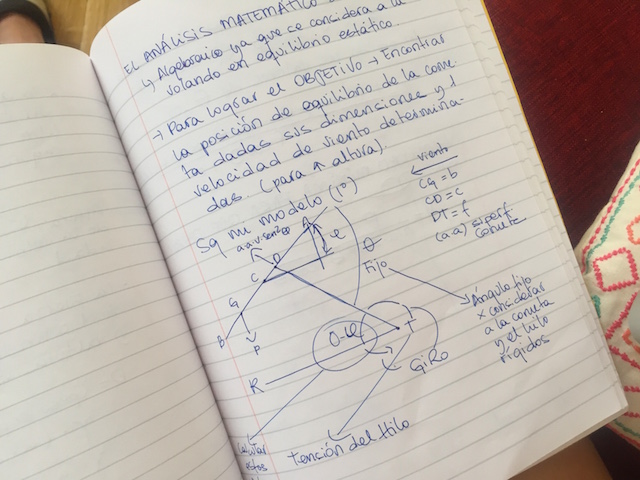 EL ANÁLISIS MATEMÁTICO
↳ Algebraico ya que se considera a la
volando en equilibrio estático.
→ Para lograr el OBJETIVO → Encontrar
la posición de equilibrio de la come-
ta dadas sus dimensiones y 1
velocidad de viento determina-
das (para ↑ altura).
Sg mi modelo (1º)
viento
CG = b
CD = c
DT = f
(a·a) superf
cometa
A
e
θ
Fijo
D
C
G
B
P
Ángulo fijo
x considerar
a la cometa
y el hilo
rígidos
T
θ-φ
R
GIRO
Calcular
estos
Tención del Hilo